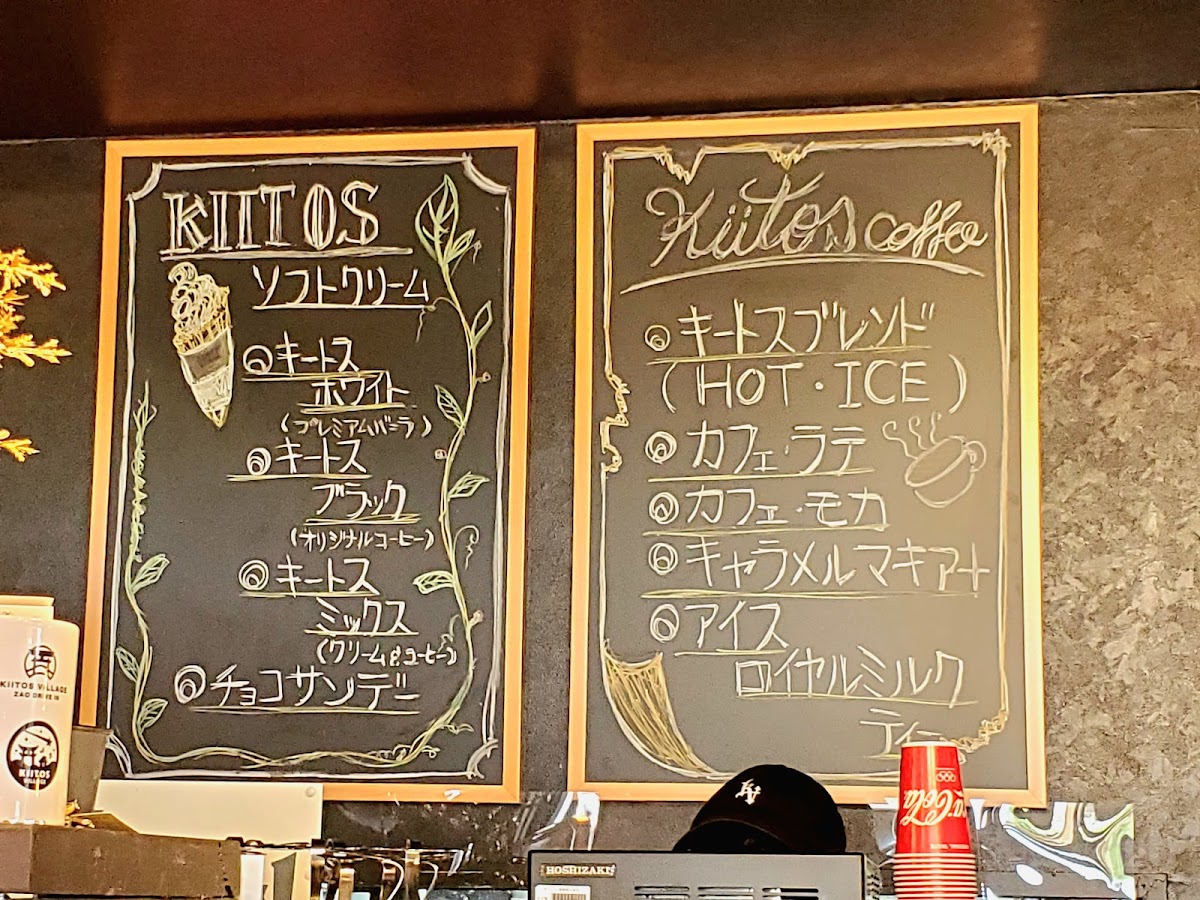 KIITOS
ソフトクリーム
キートス
ホワイト
(プレミアムバニラ)
キートス
ブラック
(オリジナルコーヒー)
キートス
ミックス
(クリーム&コーヒー)
チョコサンデー
Kiitos coffee
キートスブレンド
(HOT・ICE)
カフェ・ラテ
カフェ・モカ
キャラメルマキアート
アイス
ロイヤルミルク
ティー
KIITOS VILLAGE
ZAO DRIVE IN
KIITOS
VILLAGE
HOSHIZAKI
Coca-Cola